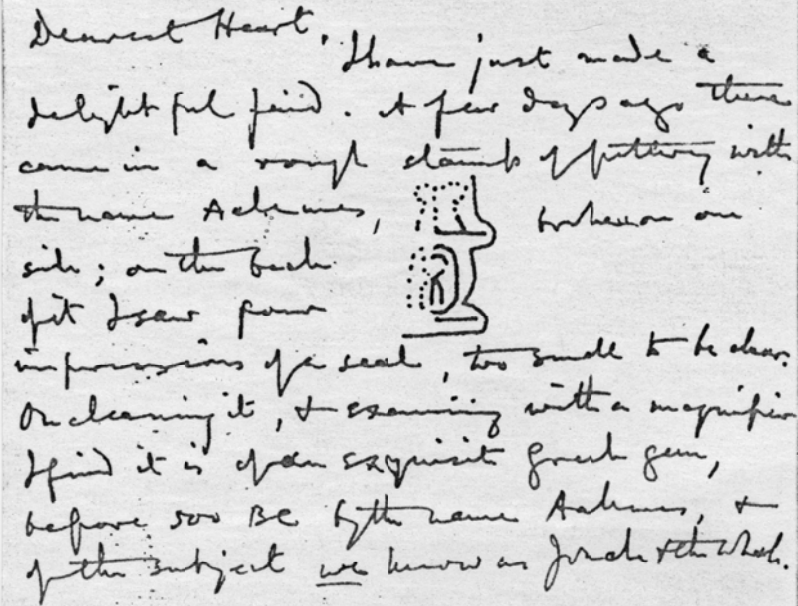 Dearest Heart,
I have just made a
delightful find. A few days ago there
came in a rough stamp of pottery with
the name Aahmes, broken on one
side; on the back
of it I saw four
impressions of a seal, too small to be clear.
On cleaning it, & examining with a magnifier
I find it is of an exquisite Greek gem,
before 500 BC by the name Aahmes, &
of the subject we know as Jonah & the Whale.